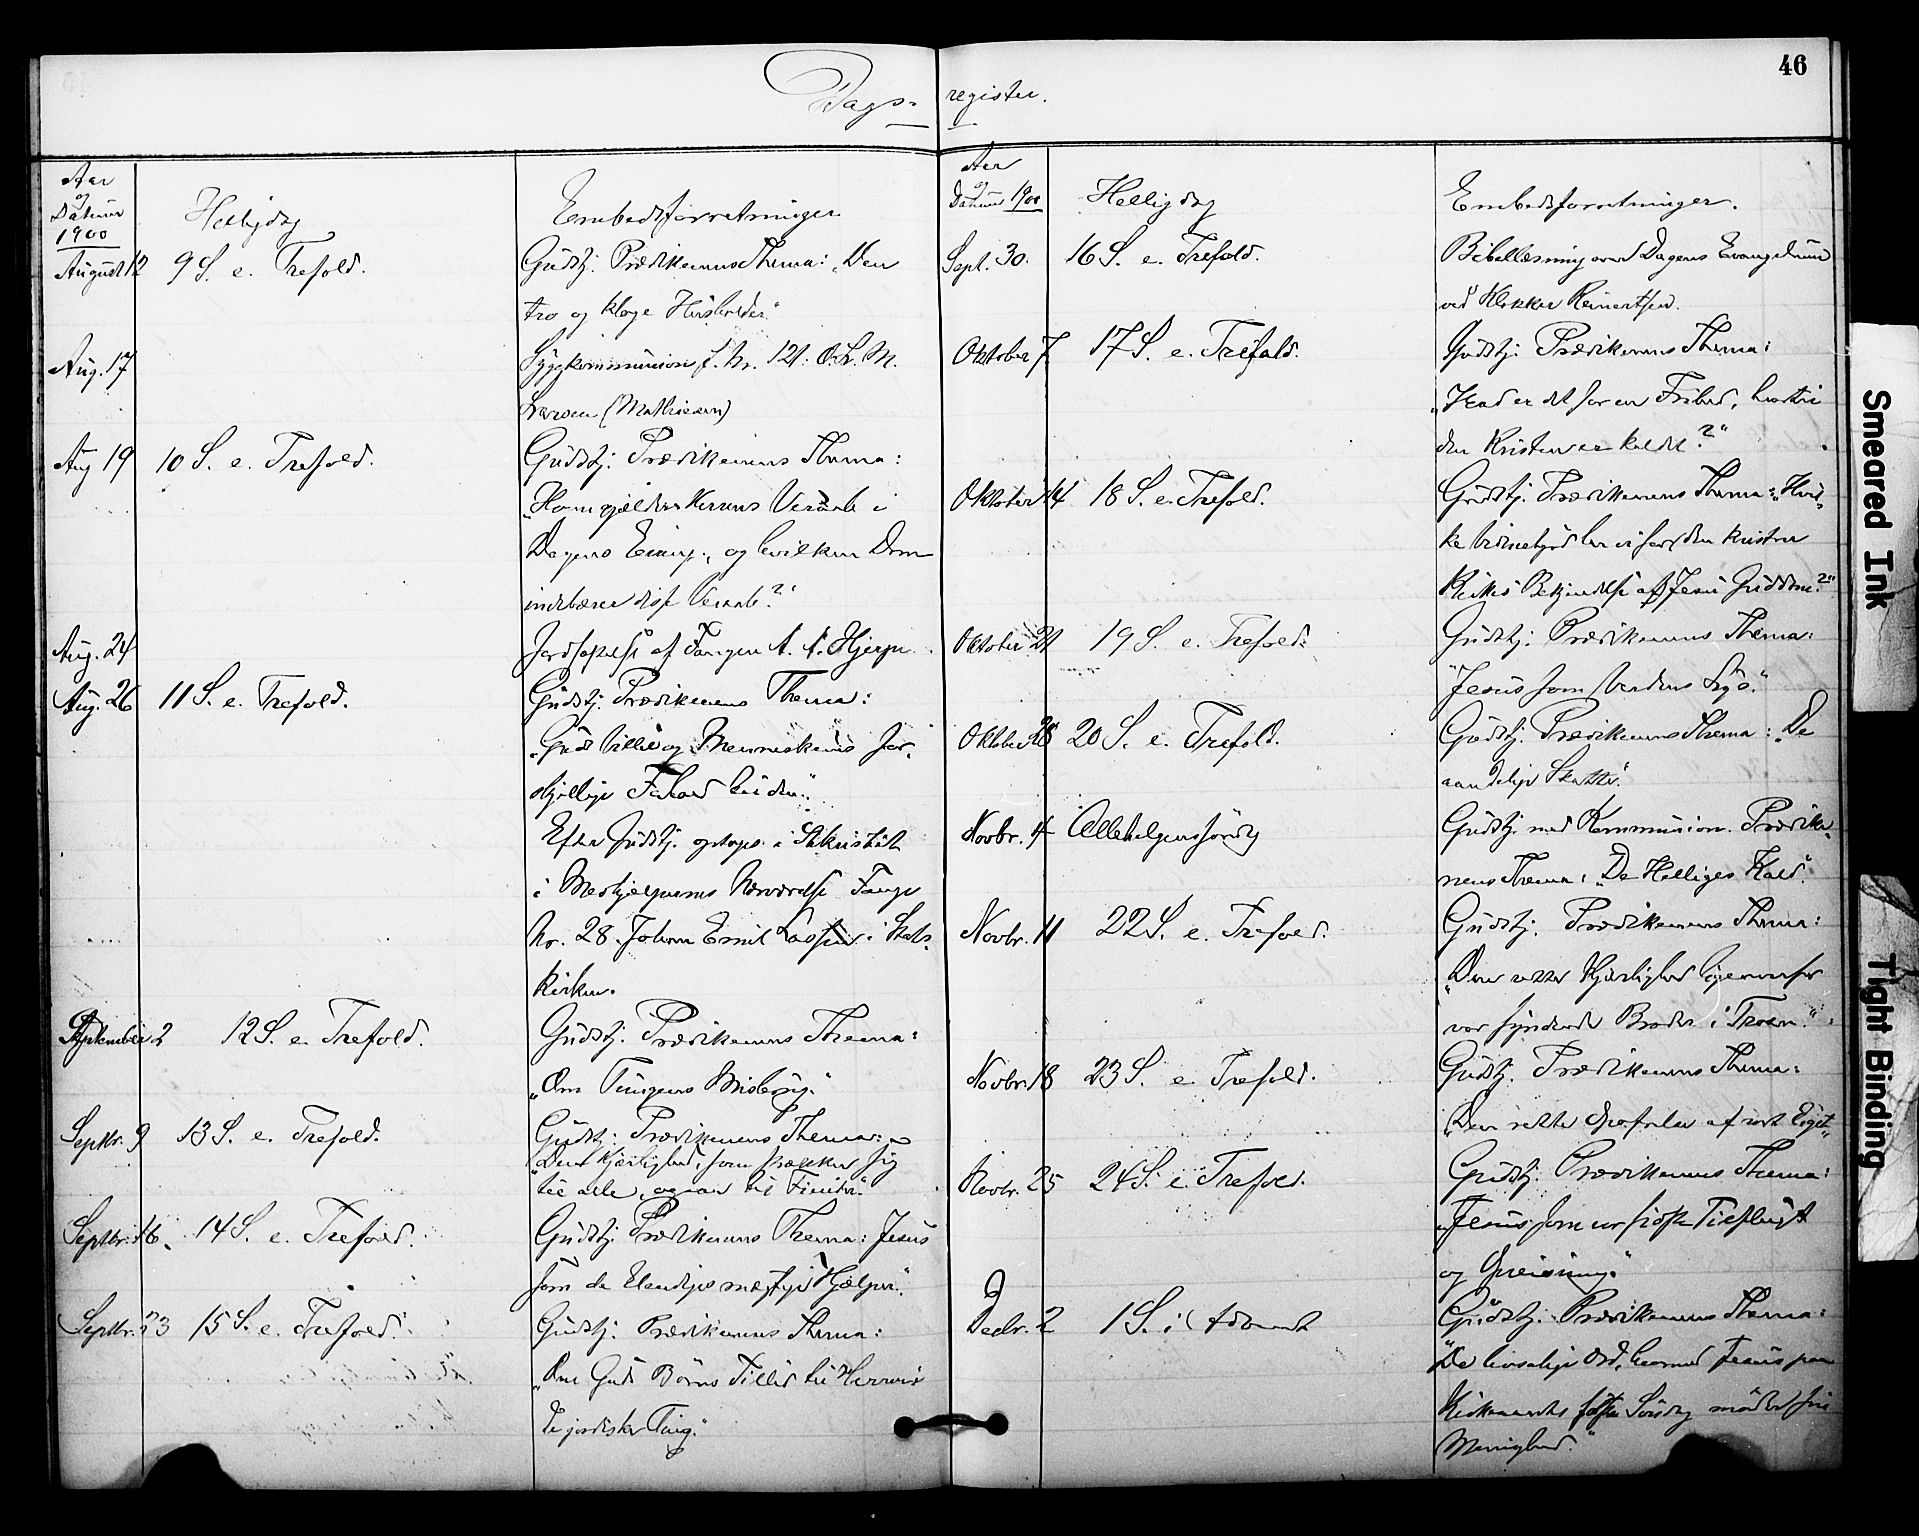 46
Dags- register.
Aar
og
Datum
1900
Helligdag
Embedsforretninger
August 12 9 S. e. Trefold. Gudstj. Prædikenens Thema: "Den
tro og kloge Husholder."
Aug. 17 Sygekommunion f. Nr. 121. O. L. M.
Larsen (Mathiesen)
Aug 19 10 S. e. Trefold. Gudstj. Prædikenens Thema:
Herrens i
Dagens og hvilken Dom
indbærer
Aug. 24 Jordfæstelse af Fangen A. A. Hjerpe
Aug. 26 11 S. e. Trefold. Gudstj. Prædikenens Thema:
"Guds Villie og Menneskenes for-
skjellige Forhold til den."
Efter Gudstj. optoges i Sakristiet
i Medhjælpernes Nærværelse Fange
Nr. 28 Johan Emil i Stats-
kirken.
September 2 12 S. e. Trefold. Gudstj. Prædikenens Thema:
"Om Tungens Misbrug."
Septbr. 9 13 S. e. Trefold. Gudstj. Prædikenens Thema:
"Den Kjærlighed, som strækker sig
til alle, ogsaa til Fiender."
Septbr. 16. 14 S. e. Trefold. Gudstj. Prædikenens Thema: Jesus
som de Elendiges mægtige Hjælper."
Septbr. 23 15 S. e. Trefold. Gudstj. Prædikenens Thema:
"Om Guds Børns Tillid til Herren i
de jordiske Ting."
Aar
og
Datum 1900
Helligdag
Embedsforretninger.
Sept. 30. 16 S. e. Trefold. Bibellæsning over Dagens Evangelium
ved Klokker Reinertsen.
Oktober 7 17 S. e. Trefold. Gudstj. Prædikenens Thema:
"Hvad er det for en Frihed, hvortil
den Kristne er kaldet?"
Oktober 14 18 S. e. Trefold. Gudstj. Prædikenens Thema: "Hvil-
ke Vidnesbyrd har vi for den kristne
Kirkes Bekjendelse af Jesu Guddom?"
Oktober 21 19 S. e. Trefold. Gudstj. Prædikenens Thema:
"Jesus som Verdens Lys."
Oktober 28 20 S. e. Trefold. Gudstj. Prædikenens Thema: "De
aandelige Skatte."
Novbr. 4 Allehelgenssøndag Gudstj. med Kommunion. Prædike-
nens Thema: "De Helliges Kald."
Novbr. 11 22 S. e. Trefold. Gudstj. Prædikenens Thema:
"Den rette Kjærlighed ligeoverfor
vor syndende Broder i Troen."
Novbr. 18 23 S. e. Trefold. Gudstj. Prædikenens Thema:
"Den rette Opofrelse af vort Eget"
Novbr. 25 24 S. e. Trefold. Gudstj. Prædikenens Thema:
"Jesus som vor sidste Tilflugt
og
Decbr. 2 1 S. i Advent Gudstj. Prædikenens Thema:
"De livsalige Ord, hvormed Jesus paa
Kirkeaarets første Søndag møder sin
Menighed."
Smeared Ink
Tight Binding